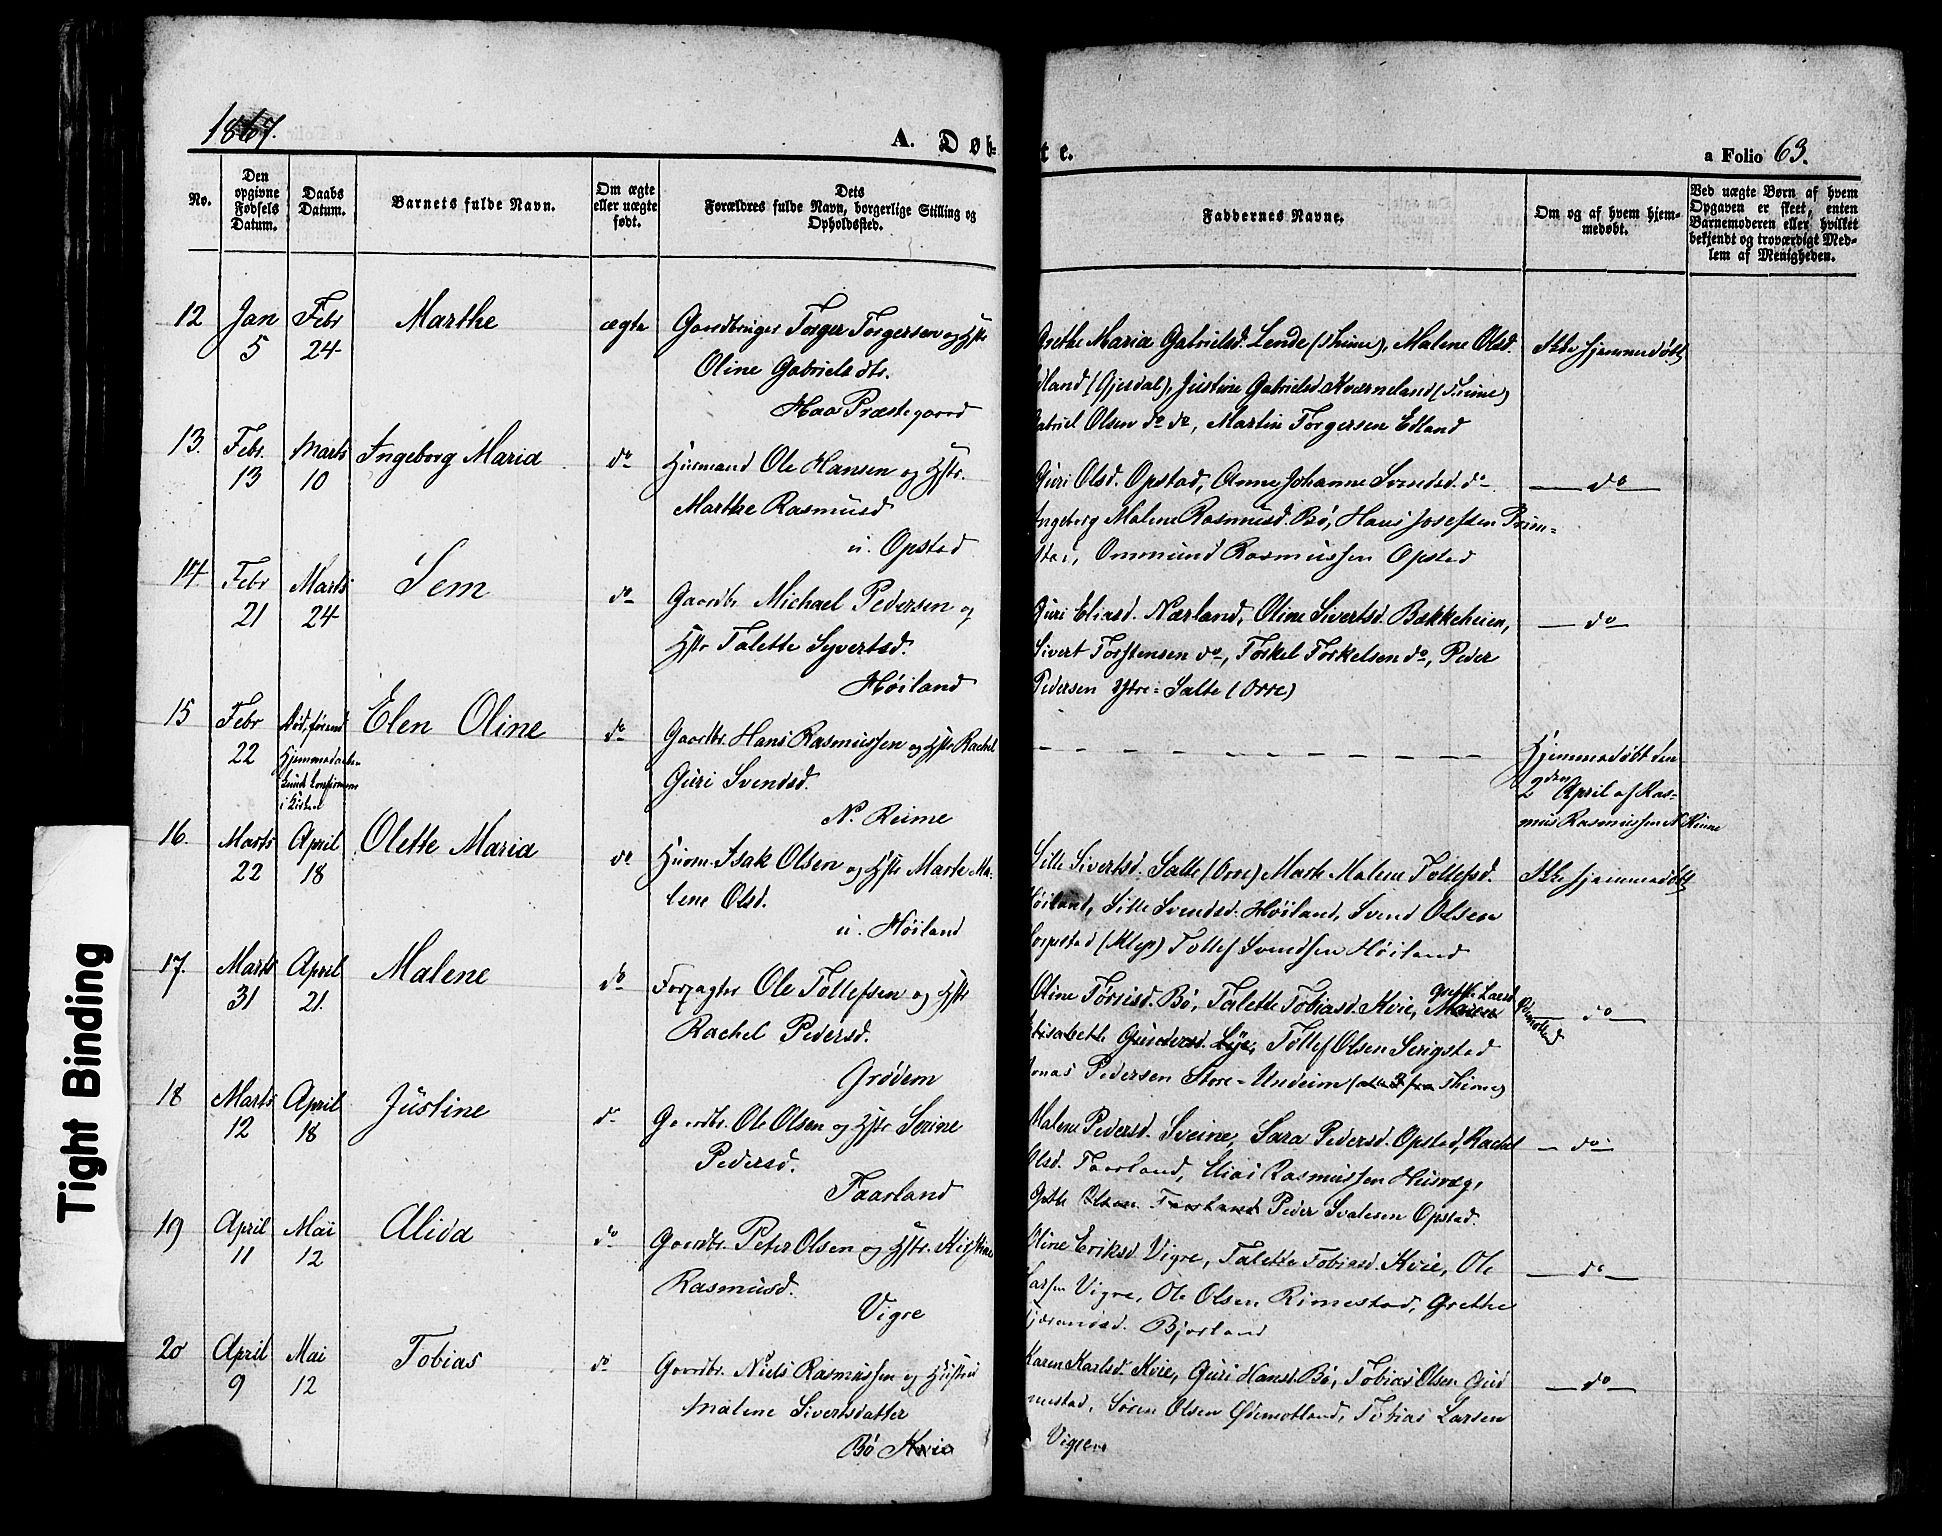 1867.
A. Døb-
te.
a Folio 63.
No.
Den
opgivne
Fødsels
Datum.
Daabs
Datum.
Barnets fulde Navn.
Om ægte
eller uægte
født.
Dets
Forældres fulde Navn, borgerlige Stilling og
Opholdssted.
Faddernes Navne.
Om og af hvem hjem-
medøbt.
Ved uægte Børn af hvem
Opgaven er skeet, enten
Barnemoderen eller hvilket
bekjendt og troværdigt Med-
lem af Menigheden.
12 Jan Febr Marthe ægte Gaardbruger Torger Torgersen og Hstr
5 24 Oline Gabrielsdtr.
Haa Præstegaard
Grethe Maria Gabrielsd. Lende (Thime), Malene Olsd. Ikke hjemmedøbt
Edland (Gjesdal), Justine Gabrielsd. Kværneland (Thime)
Gabriel Olsen do do, Martin Torgersen Edland
13. Febr. Marts Ingeborg Maria do Huusmand Ole Hansen og Hstr.
13 10 Marthe Rasmusd
u. Opstad
Guri Olsd. Opstad, Anne Johanne Svendsd. do do
Ingeborg Malene Rasmusd. Bø, Hans Josefsen Prim-
stad, Ommund Rasmussen Opstad
14. Febr Marts Sem do Gaardbr Michael Pedersen og
21 24 Hstr Talette Syvertsd.
Høiland
Guri Eliasd. Nærland, Oline Sivertsd. Bækkeheien, do
Sivert Torstensen do, Torkel Torkelsen do, Peder
Pedersen Ytre-Salte (Orre)
15 Febr Død, førend Elen Oline do Gaardbr. Hans Rasmussen og Hstr Rachel
22 Hjemmedaaben
kunde confirmeres
i Kirken
Guri Svendsd.
N. Reime
Hjemmedøbt den
2den April af Ras-
mus Rasmussen N. Reime
16. Marts April Olette Maria do Huusm. Isak Olsen og Hstr Marte Ma-
22 18 lene Olsd.
u. Høiland
Sille Sivertsd. Salte (Orre) Marte Malene Tollefsd. Ikke hjemmedøbt
Høiland, Sille Svendsd. Høiland, Svend Olsen
(Klep) Tollef Svendsen Høiland
17. Marts April Malene do Forpagter Ole Tollefsen og Hstr
31 21. Rachel Pedersd.
Grødem
Oline Tørrisd. Bø, Talette Tobiasd. Kvie, Grethe Larsd. do
Elisabeth Gundersd. Lye, Tollef Olsen Serigstad
Jonas Pedersen Store-Undeim Thime)
18 Marts April Justine do Gaardbr. Ole Olsen og Hstr Serine
12 18 Pedersd.
Taarland
Malene Pedersd. Sveine, Sara Pedersd. Opstad, Rachel do
Olsd. Taarland, Elias Rasmussen Husvæg,
Taarland Peder Svalesen Opstad.
19 April Mai Alida do Gaardbr. Peter Olsen og Hstr. Kirstine
11 12 Rasmusd.
Vigre
Oline Eriksd. Vigre, Talette Tobiasd. Kvie, Ole do
Larsen Vigre, Ole Olsen Rimestad, Grethe
Bjorland
20 April Mai Tobias do Gaardbr. Niels Rasmussen og Hustru
9 12 Malene Sivertsdatter
Bø Kvie
Karen Karlsd. Kvie, Guri Hansd. Bø, Tobias Olsen Gud- do
mestad, Søren Olsen Ødemotland, Tobias Larsen
Vigre
Tight Binding